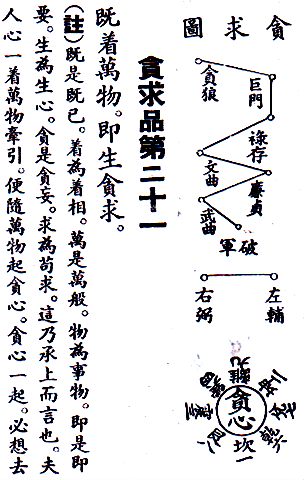 貪求圖
巨門
貪狼
祿存
文曲
廉貞
武曲
破軍
左輔
右弼
貪心
離九
坤二
兌七
乾六
坎一
震三
貪求品第二十一
既着萬物。即生貪求。
（註）既是既已。着為着相。萬是萬般。物為事物。即是即
要。生為生心。貪是貪妄。求為苟求。這乃承上而言也。夫
人心一着萬物牽引。便隨萬物起貪心。貪心一起。必想去